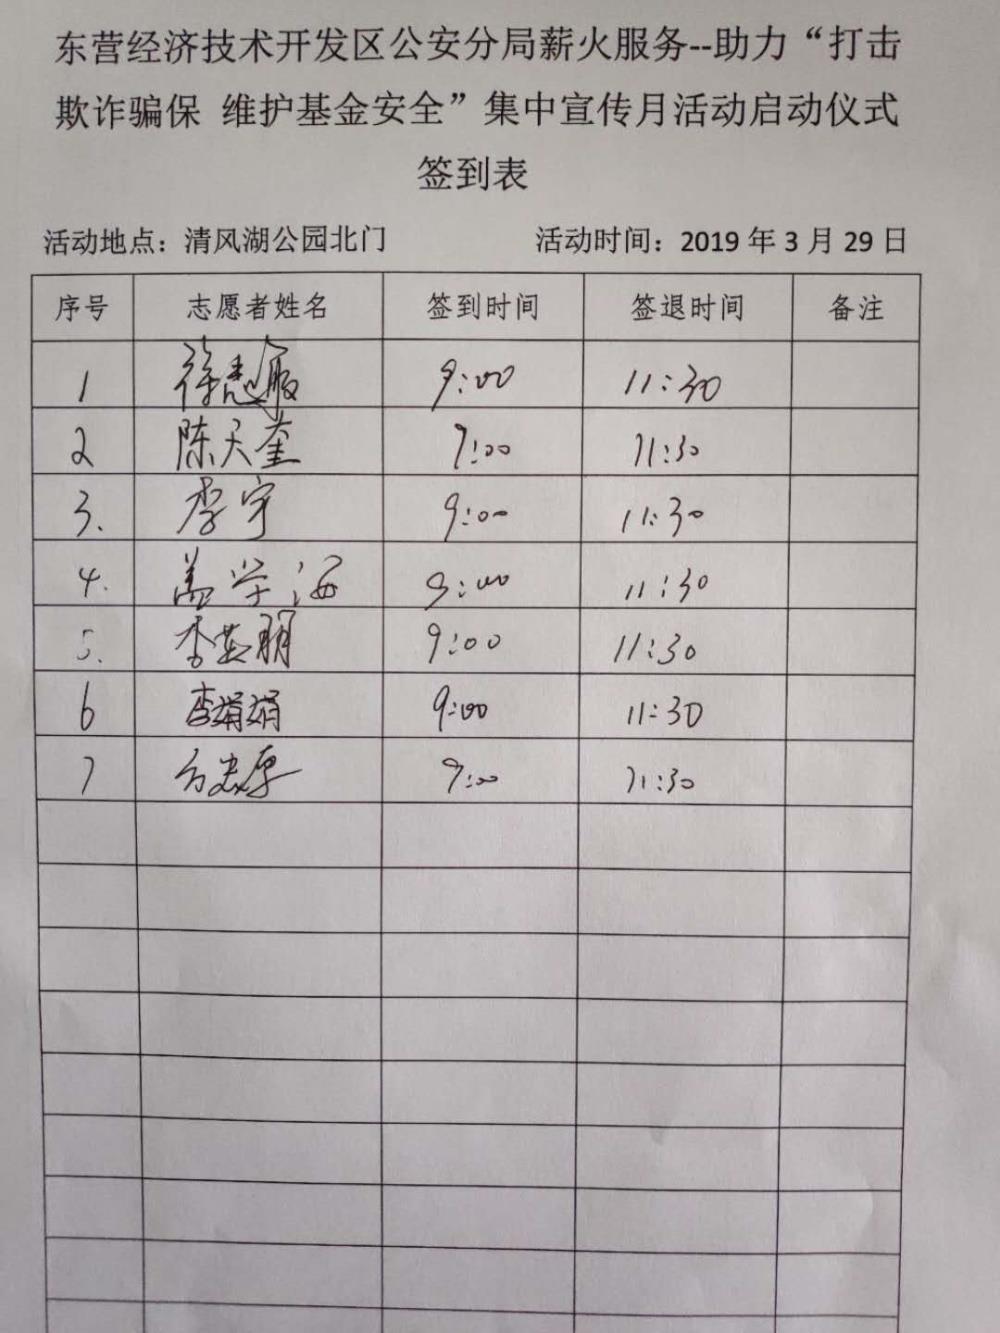 东营经济技术开发区公安分局薪火服务--助力“打击
欺诈骗保 维护基金安全”集中宣传月活动启动仪式
签到表
活动地点：清风湖公园北门 活动时间：2019 年 3 月 29 日
序号 志愿者姓名 签到时间 签退时间 备注
1 徐 9:00 11:30
2 陈天奎 9:00 11:30
3. 李宇 9:00 11:30
4. 盖学海 9:00 11:30
5. 李英朋 9:00 11:30
6 李娟娟 9:00 11:30
7 9:00 11:30